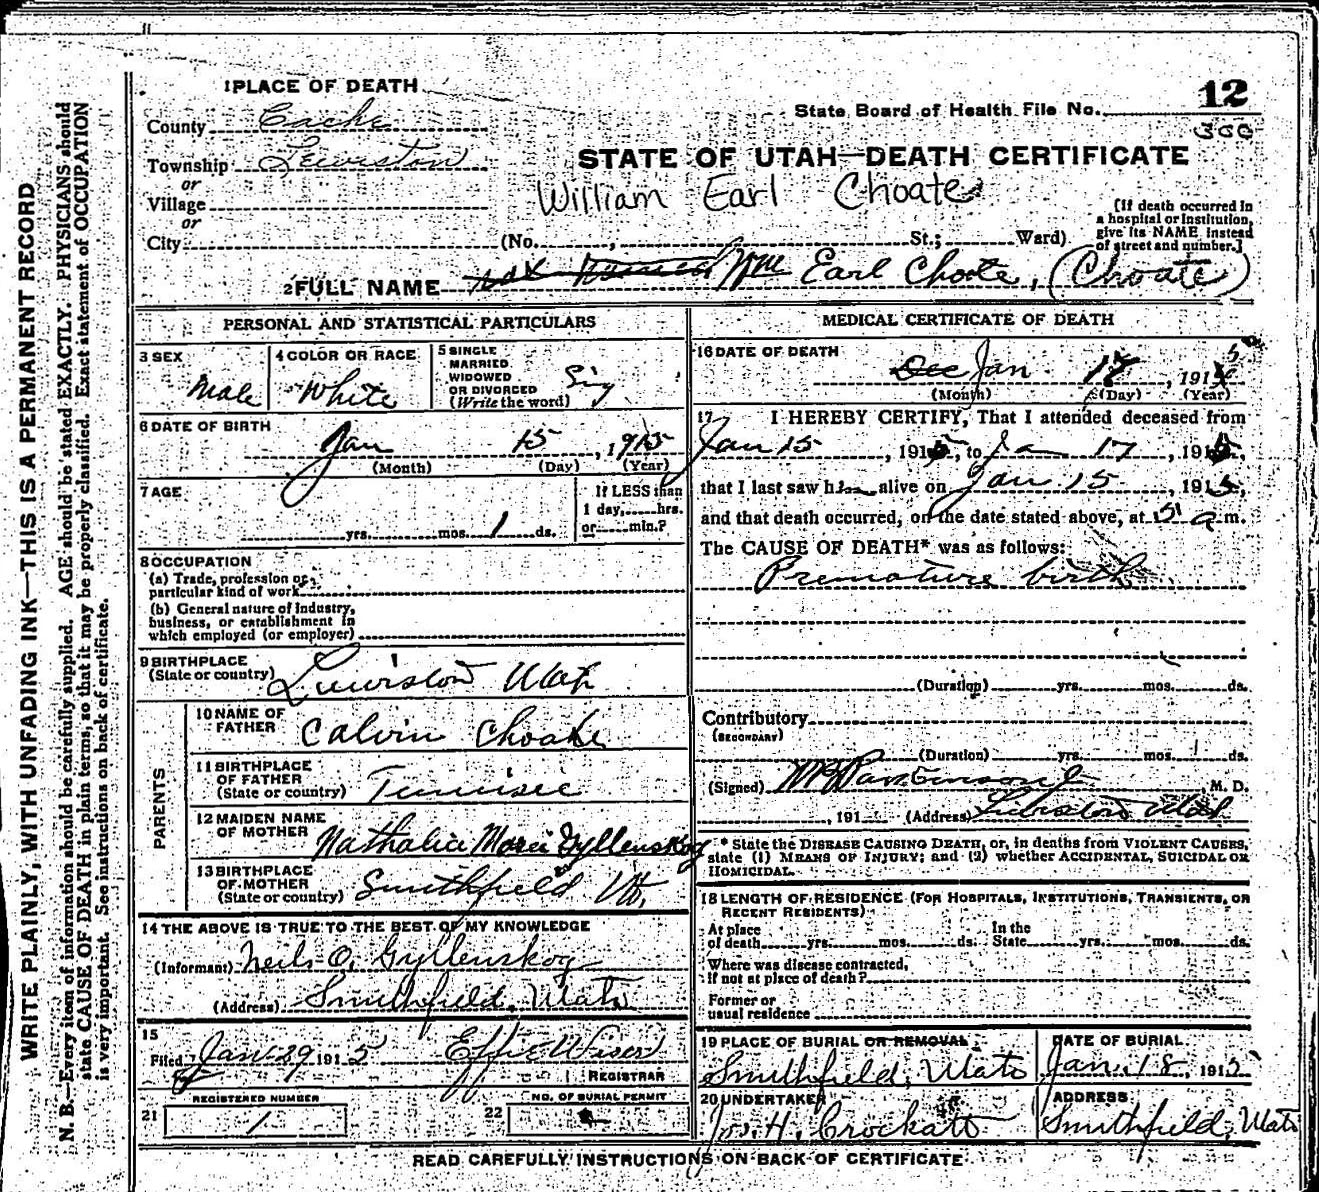 1 PLACE OF DEATH
County Cache
Township Lewiston
or
Village
or
City
(No. , St.; Ward)
12
State Board of Health File No.
300
STATE OF UTAH—DEATH CERTIFICATE
William Earl Choate
[If death occurred in
a hospital or institution,
give its NAME instead
of street and number.]
2 FULL NAME Wm Earl Choate, (Choate)
PERSONAL AND STATISTICAL PARTICULARS
3 SEX
Male
4 COLOR OR RACE
White
5 SINGLE
MARRIED
WIDOWED
OR DIVORCED
(Write the word)
Sing
6 DATE OF BIRTH
Jan 15, 1915
(Month) (Day) (Year)
7 AGE
yrs. mos. 1 ds.
If LESS than
1 day, hrs.
or min.?
8 OCCUPATION
(a) Trade, profession or
particular kind of work
(b) General nature of Industry,
business, or establishment in
which employed (or employer)
9 BIRTHPLACE
(State or country)
Lewiston Utah
PARENTS
10 NAME OF
FATHER
Calvin Choate
11 BIRTHPLACE
OF FATHER
(State or country)
12 MAIDEN NAME
OF MOTHER
Nathalia Marie Gyllenskog
13 BIRTHPLACE
OF MOTHER
(State or country)
Smithfield Ut,
14 THE ABOVE IS TRUE TO THE BEST OF MY KNOWLEDGE
(Informant) Neils O. Gyllenskog
(Address) Smithfield, Utah
15
Filed Jan 29 1915 Effie Wiser
REGISTRAR
21
REGISTERED NUMBER
1
22
NO. OF BURIAL PERMIT
MEDICAL CERTIFICATE OF DEATH
16 DATE OF DEATH
Dec Jan 18, 1915
(Month) (Day) (Year)
17 I HEREBY CERTIFY, That I attended deceased from
Jan 15, 1915, to Ja 17, 1915,
that I last saw him alive on Jan 15, 1915,
and that death occurred, on the date stated above, at a m.
The CAUSE OF DEATH* was as follows:
Premature birth
(Duration) yrs. mos. ds.
Contributory
(SECONDARY)
(Duration) yrs. mos. ds.
(Signed) Parkinson M. D.
, 191 (Address) Lewiston Utah
* State the DISEASE CAUSING DEATH, or, in deaths from VIOLENT CAUSES,
state (1) MEANS OF INJURY; and (2) whether ACCIDENTAL, SUICIDAL OR
HOMICIDAL.
18 LENGTH OF RESIDENCE (FOR HOSPITALS, INSTITUTIONS, TRANSIENTS, OR
RECENT RESIDENTS)
At place
of death yrs. mos. ds.
In the
State yrs. mos. ds.
Where was disease contracted,
if not at place of death?
Former or
usual residence
19 PLACE OF BURIAL OR REMOVAL
Smithfield, Utah
DATE OF BURIAL
Jan. 18, 1915
20 UNDERTAKER
Jos. H. Crockatt
ADDRESS
Smithfield, Utah
READ CAREFULLY INSTRUCTIONS ON BACK OF CERTIFICATE
WRITE PLAINLY, WITH UNFADING INK—THIS IS A PERMANENT RECORD
N. B.—Every item of information should be carefully supplied. AGE should be stated EXACTLY. PHYSICIANS should
state CAUSE OF DEATH in plain terms, so that it may be properly classified. Exact statement of OCCUPATION
is very important. See instructions on back of certificate.